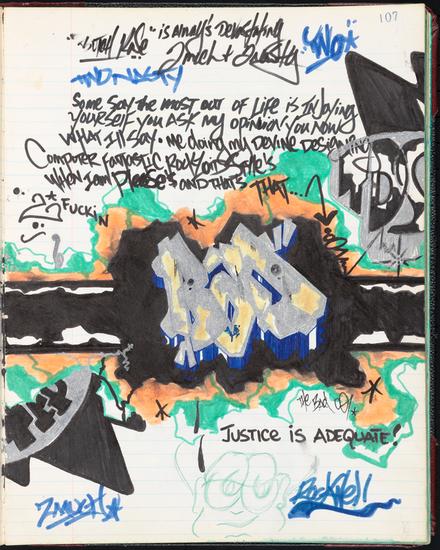 107
"Butch Kase" is Always Devastating
2 Much + 2 Nasty
AND NASTY
Some Say the most out of Life is InJoying
Yourself. you Ask my opinion you Now
WHAT I'll SAY. Me doing my Devine Designing
Computer Fantastic Rock Solid Style's
When I can Please's and that's THAT...
2 Fuckin
BAD
The Bad
JUSTICE is ADEQUATE!
2-MUCH
Rockwell